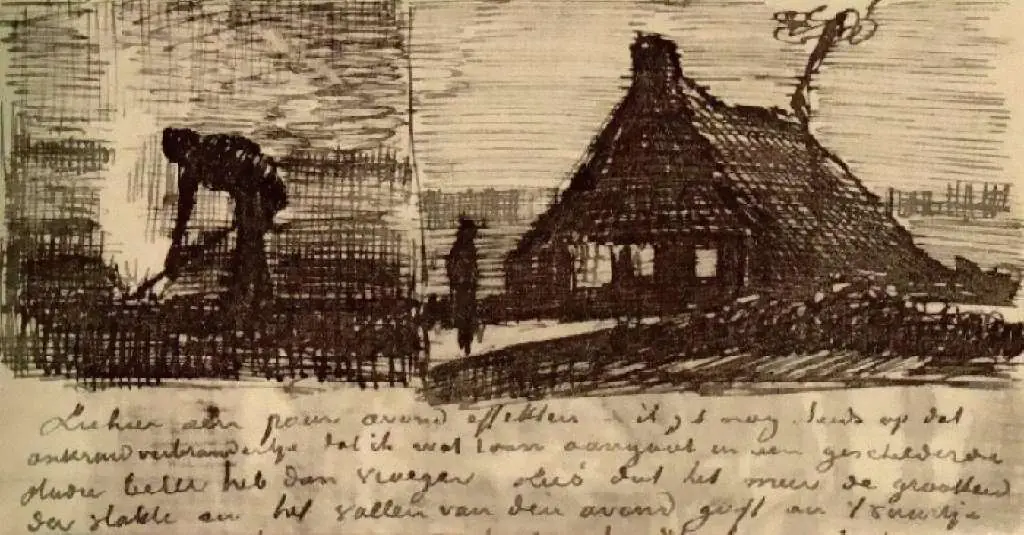 Ziehier een paar avond effekten ik zit nog steeds op dat
onkruidverbrandertje dat ik wat toon aangaat in een geschilderde
studie beter heb dan vroeger zóó dat het meer de grootheid
der vlakte en het vallen van den avond geeft en 't vuurtje